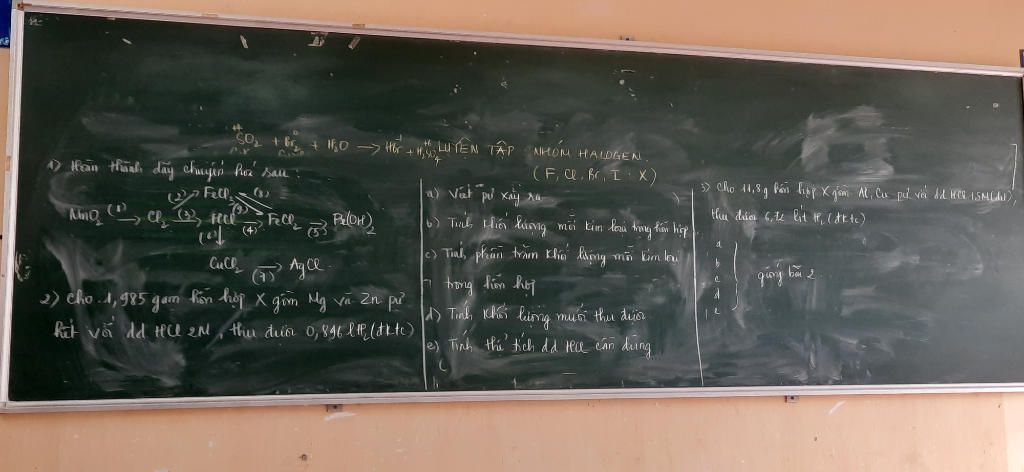 SO₂ + Br₂ + H₂O → HBr + H₂SO₄
LUYỆN TẬP NHÓM HALOGEN.
(F, Cl, Br, I : X)
1) Hoàn thành dãy chuyển hoá sau:
(2) FeCl₃ (8)
MnO₂ (1) → Cl₂ (3) → HCl (9) (4) → FeCl₂ (5) → Fe(OH)₂
(6)
CuCl₂ (7) → AgCl.
2) Cho 1,985 gam hỗn hợp X gồm Mg và Zn pư
hết với dd HCl 2M, thu được 0,896 l H₂ (đktc)
a) Viết pư xảy ra
b) Tính khối lượng mỗi kim loại trong hỗn hợp.
c) Tính phần trăm khối lượng mỗi kim loại
trong hỗn hợp
d) Tính khối lượng muối thu được
e) Tính thể tích dd HCl cần dùng
3) Cho 11,8 g hỗn hợp X gồm Al, Cu pư với dd HCl 1,5M (dư),
thu được lít H₂ (đktc)
a
b
c
d
e
giống bài 2